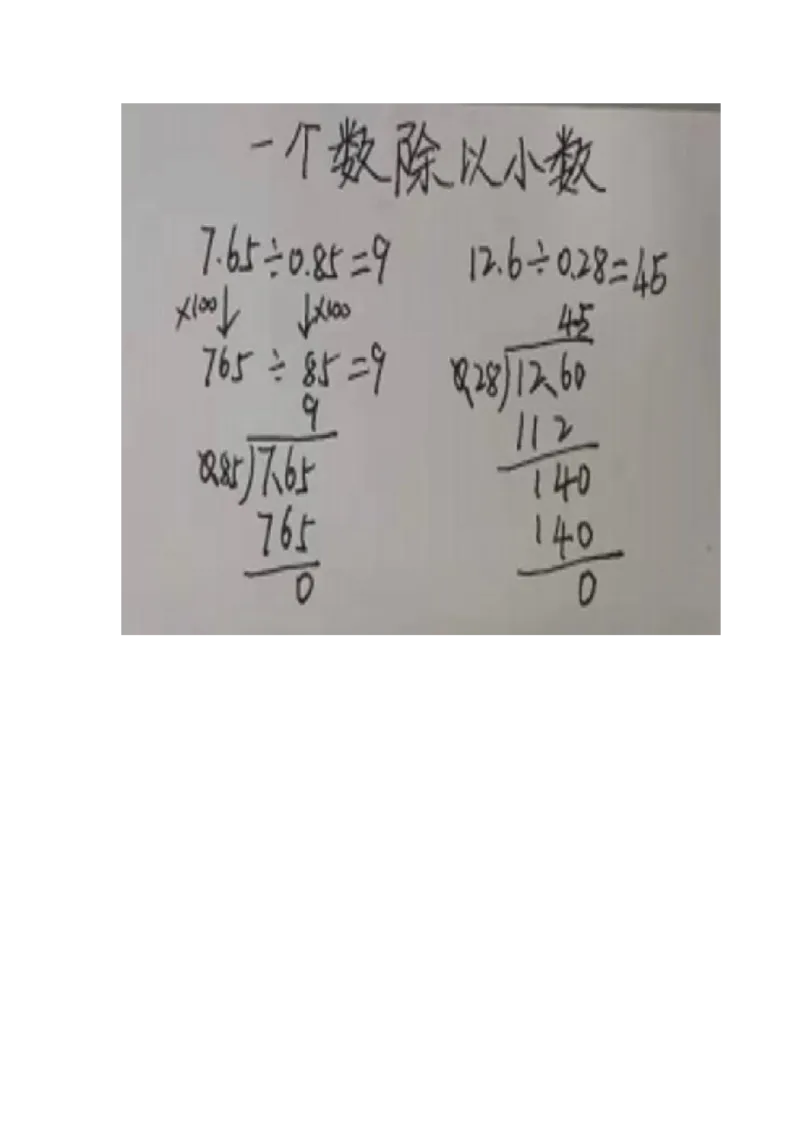 一个数除以小数
7.65÷0.85=9
×100↓ ↓×100
765÷85=9
9
0.85)7.65
765
0
12.6÷0.28=45
45
0.28)12.60
112
140
140
0